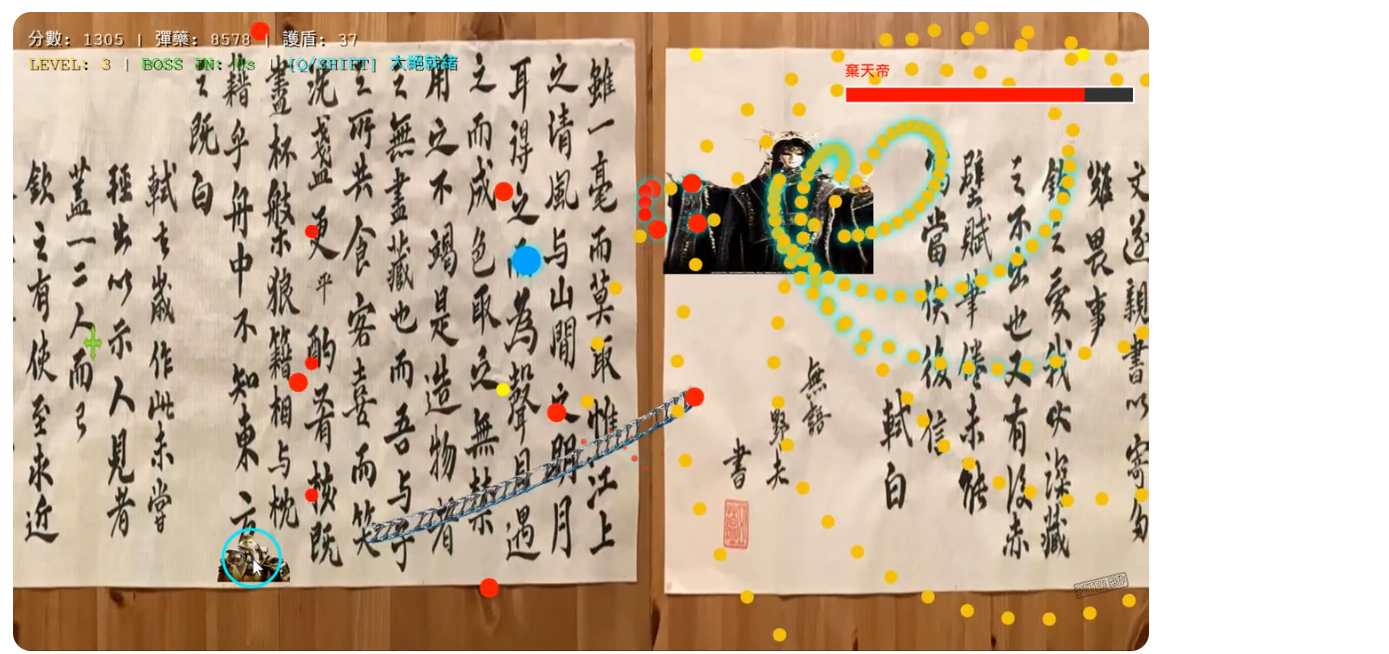 分數: 1305 | 彈藥: 8578 | 護盾: 37
LEVEL: 3 | BOSS IN: 0s | [Q/SHIFT] 大絕就緒
棄天帝
雖一毫而莫取惟江上
之清風与山間之明月
耳得之而為聲目遇
之而成色取之無禁
用之不竭是造物者
之無盡藏也而吾与子
之所共食客喜而笑
洗盞更平酌肴核既
盡杯盤狼籍相与枕
藉乎舟中不知東方
之既白
軾去歲作此未嘗
輕出以示人見者
蓋一二人而已
欽之有使至求近
文遂親書以寄勿
難畏事
欽之愛我必深藏
之不出也又有後赤
壁賦筆倦未能
當俟後信
軾白
無語
野夫
書